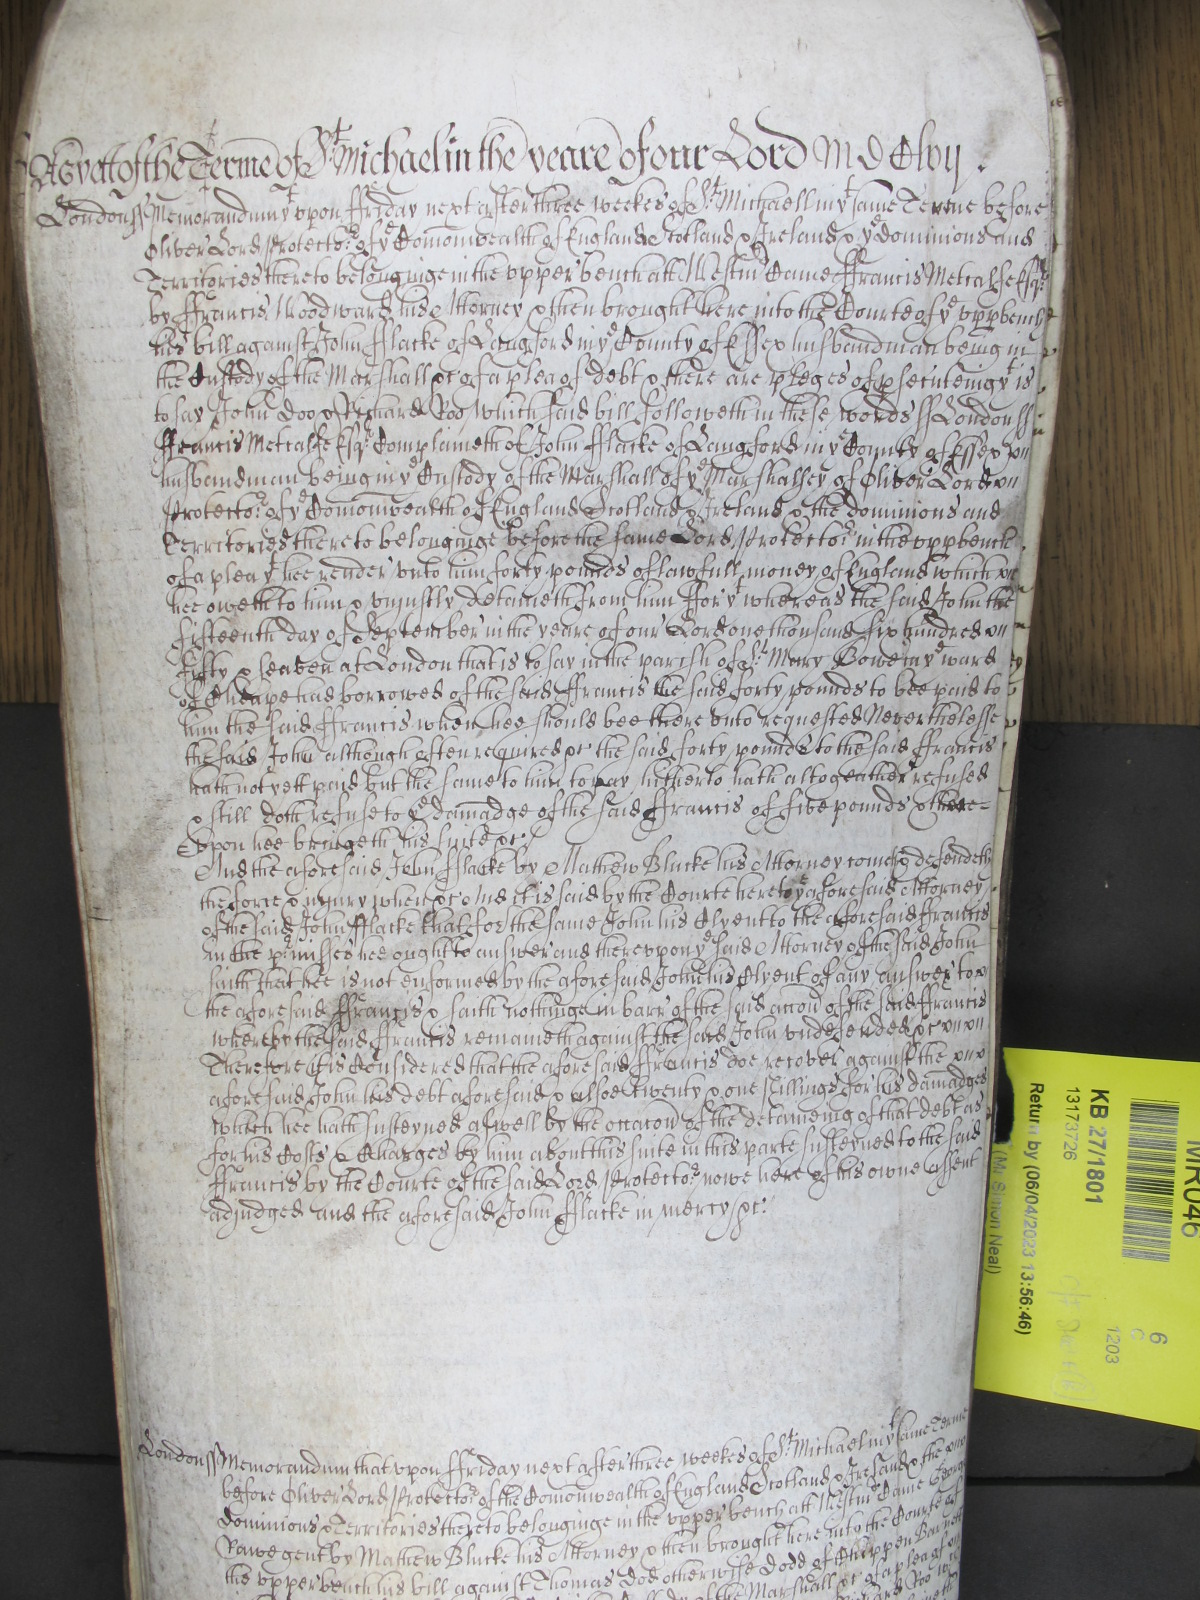 As yett of the Terme of St Michael in the yeare of our Lord MDClvij.
London ss Memorandum yt vpon ffriday next after three weekes of St Michaell in yt same Terme before
Oliver Lord Protector of ye Comonwealth of England Scotland & Ireland & ye dominions and
Territories thereto belonginge in the vpper bench att Westmr Came ffrancis Metcalfe Esqr
by ffrancis Woodward his Attorney & then brought here into the Courte of ye vppbench
his bill against John fflacke of Langford in ye County of Essex husbandman being in
the Custody of the Marshall &c of a plea of debt & there are pleges of psecuteinge yt is
to say John Doo & Richard Roo Which said bill followeth in these words ss London ss
ffrancis Metcalfe Esqr Complaineth of John fflacke of Langford in ye County of Essex
husbandman being in ye Custody of the Marshall of ye Marshalsey of Oliver Lord
Protector of ye Comonwealth of England Scotland & Ireland & the dominions and
Territories thereto belonginge before the same Lord Protector in the vppbench
of a plea yt hee render vnto him forty pounds of lawfull money of England which
hee oweth to him & vniustly detaineth from him ffor yt whereas the said John the
fifteenth day of September in the yeare of our Lord one thousand six hundred
fifty & seaven at London that is to say in the parish of St Mary Bowe in ye ward
of Cheape had borrowed of the said ffrancis the said forty pounds to bee paid to
him the said ffrancis when hee should bee there vnto requested Neverthelesse
the said John although often required &c the said forty pounds to the said ffrancis
hath not yett paid but the same to him to pay hitherto hath altogeather refused
& still doth refuse to ye damadge of the said ffrancis of five pounds & there=
vpon hee bringeth his suite &c
And the aforesaid John fflacke by Mathew Blucke his Attorney cometh & defendeth
the force & iniury when &c And it is said by the Courte here to ye aforesaid Attorney
of the said John fflacke that for the same John his Clyent to the aforesaid ffrancis
in the pmisses hee ought to answer and therevpon ye said Attorney of the said John
saith that hee is not enformed by the aforesaid John his Clyent of any answer to
the aforesaid ffrancis & saith nothinge in barr of the said accon of the said ffrancis
whereby the said ffrancis remaineth against the said John vndefended &c
Therefore it is Considered that the aforesaid ffrancis doe recover against the
aforesaid John his debt aforesaid & alsoe twenty & one shillings for his damadges
which hee hath susteyned aswell by the occacon of the detaineing of that debt as
for his Costs & Charges by him about his suite in this parte susteyned to the said
ffrancis by the Courte of the said Lord Protector nowe here of his owne assent
adiudged and the aforesaid John fflacke in mercy &c.
London ss Memorandum that vpon ffriday next after three weekes of St Michael in yt same Terme
before Oliver Lord Protector of the Comonwealth of England Scotland & Ireland & the
dominions & Territories thereto belonginge in the vpper bench att Westmr Came George
Rawe gent by Mathew Blucke his Attorney & then brought here into the Courte of
the vpper bench his bill against Thomas Dod otherwise Dodd of Chippen
the Marshall &c of a plea of
MR046
KB 27/1801
13173726
Return by (06/04/2023 13:56:46)
(Mr Simon Neal)
6
C
1203